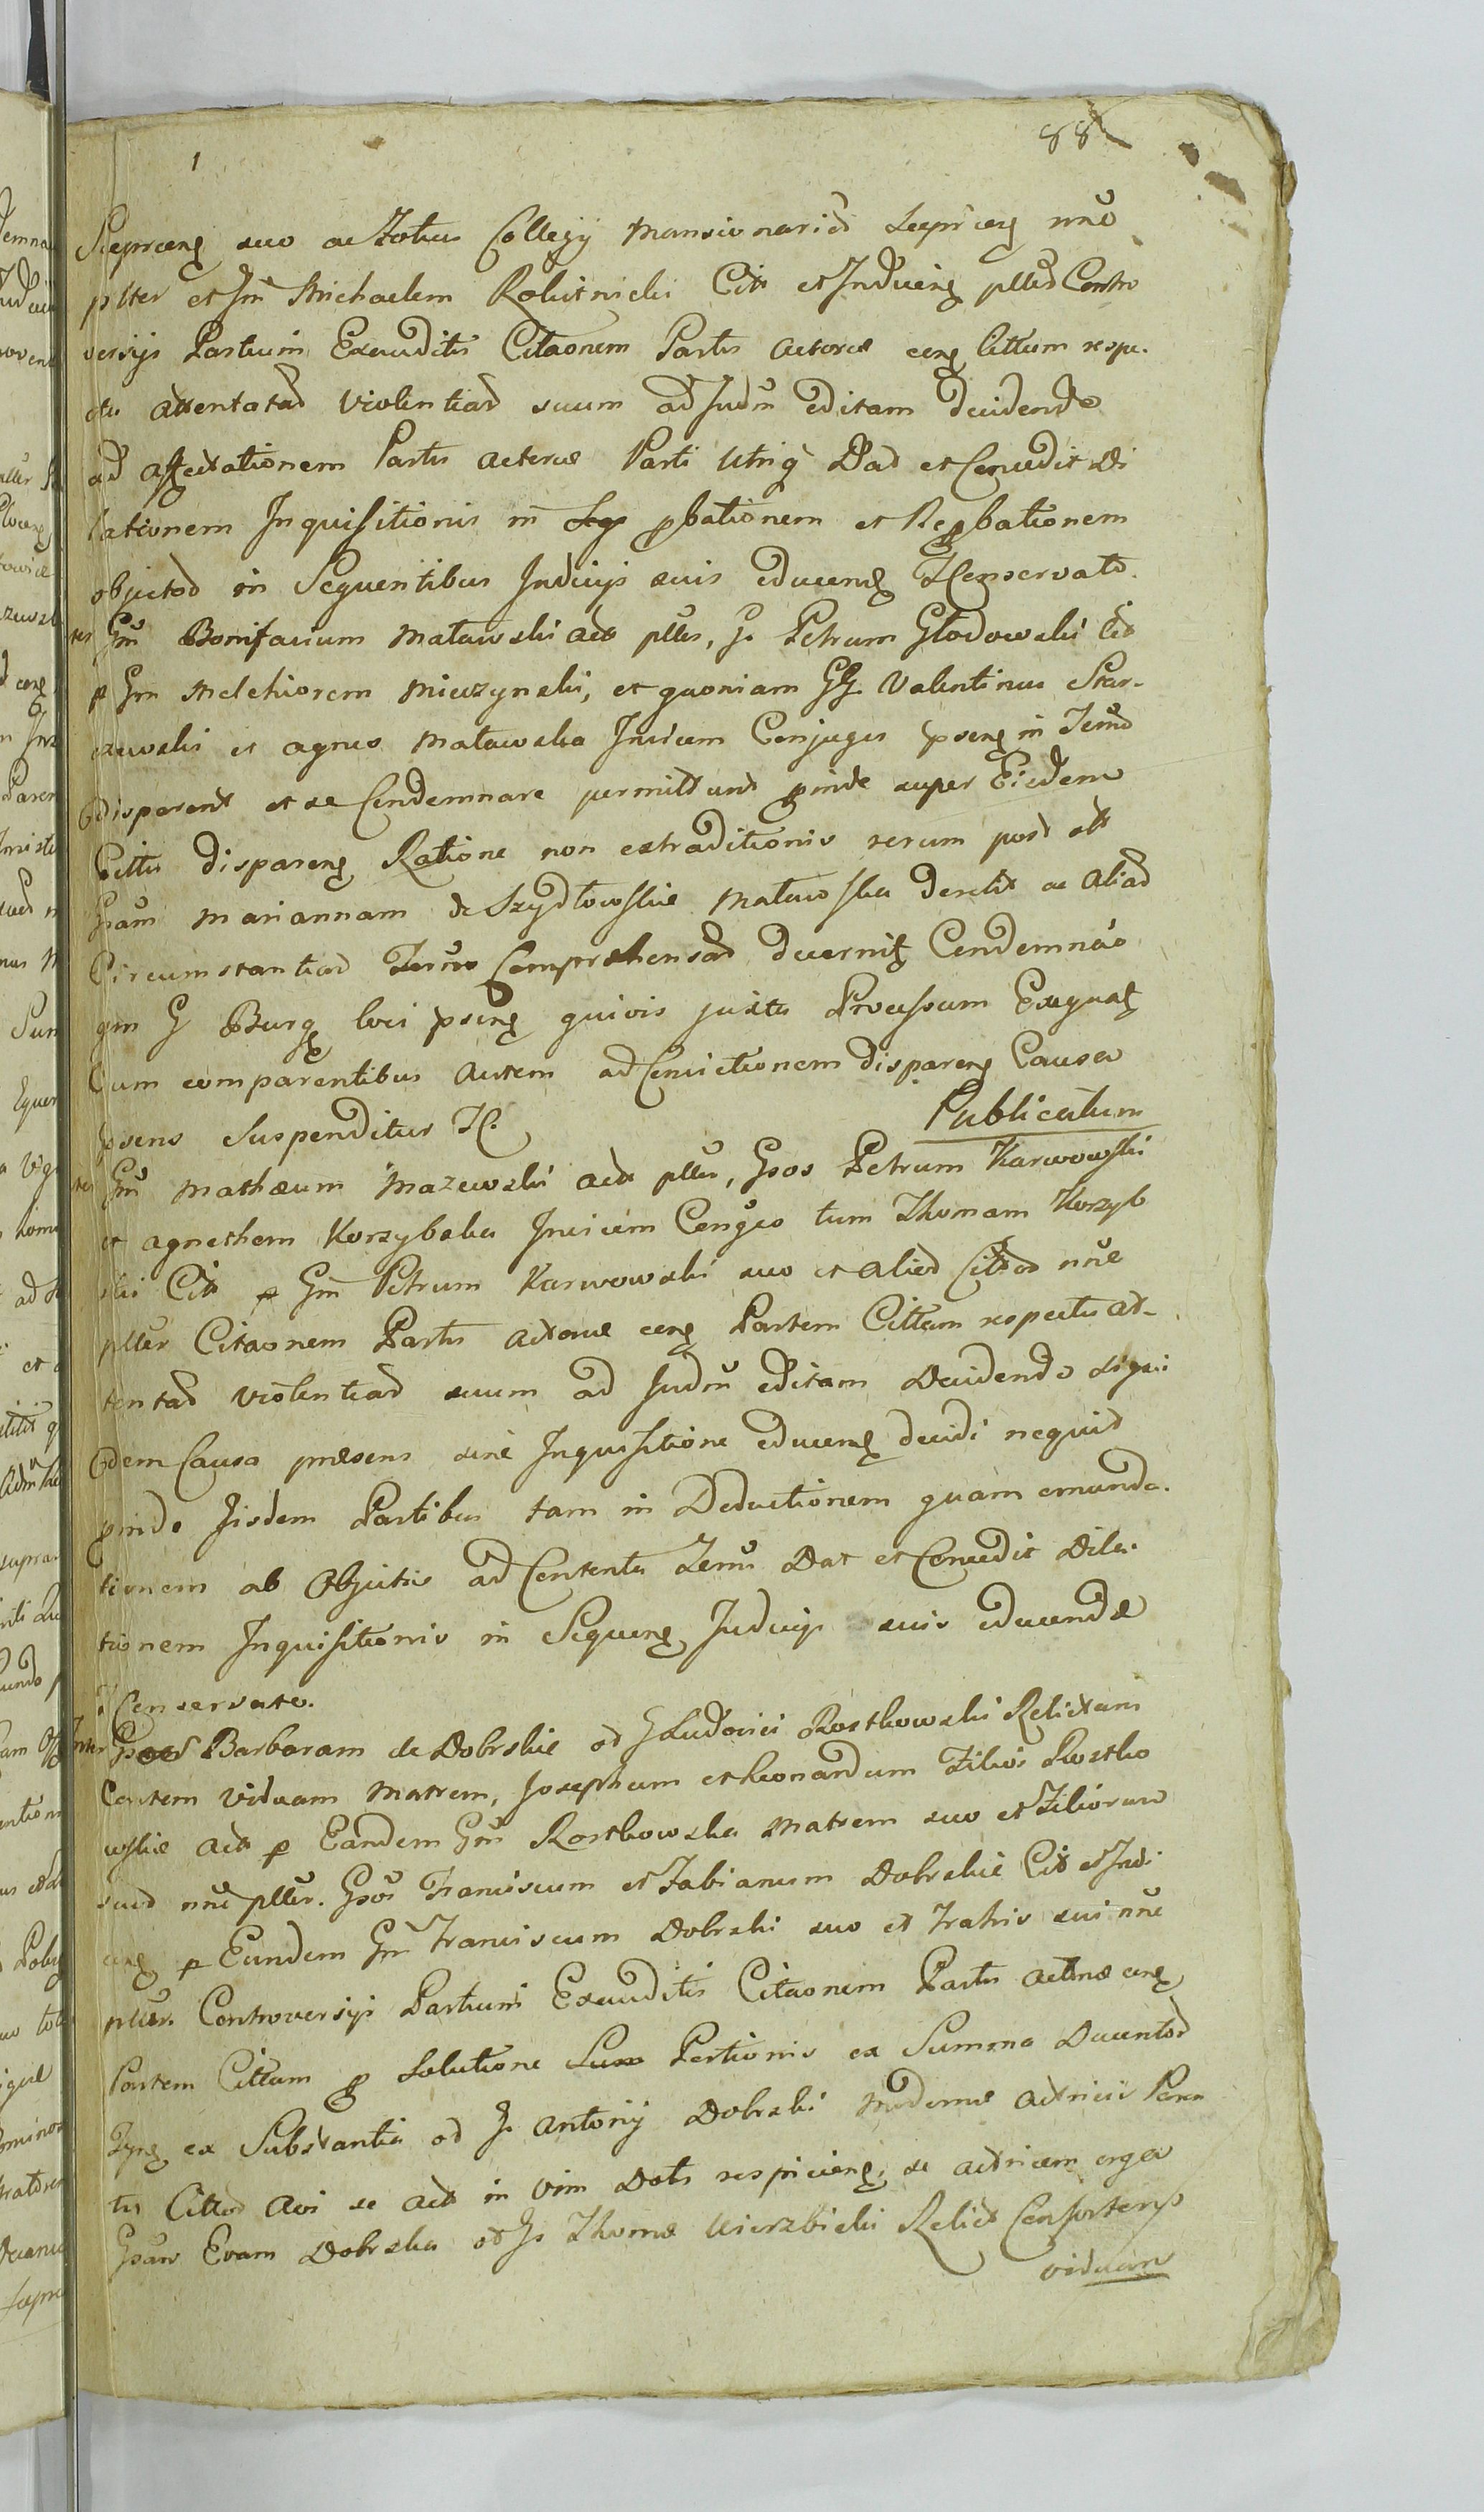 88
1
Sieprceng suo ac Totius Collegij Mansionariod Sieprceng nnô
plter et Jm Michaelem Rokitnicki Citt et Inducing plled Contro
versijs Partium Exauditis Citaonem Partis actoreæ ceng Cittum respe.
ctu attentatad violentiad suum ad Judm editam decidendo
ad affectationem Partis actoreæ Parti utriq Dad et Concedit Di
lationem Inquisitionis in pbationem et Repbationem
objectod in Sequentibus Judicijs suis educend Conservato.
ter Gm Bonifacium Matawski act plter, Gs Petrum Głodowski Citt
p Gm Melchiorem Mieczynski, et quoniam GG Valentinus Skar-
zewski et agnes Matawska Invicem Conjuges pseng in Termo
disparent et se Condemnare permittunt pinde super Eisdem
Cittis dispareng Ratione non extraditionis rerum post ott
Gsam Mariannam de Szydłowskie Matawska derelit ac aliad
Circumstantiad Termo Comprehensad decernit Condemnáo
qm G Burg loci pseng quivis juxta Processum Exequat
Cum comparentibus autem ad Convictionem dispareng Causa
psens suspenditur
Publicatum
ter Gm Mathæum Mazewski act plter, Gsos Petrum Karwowski
et agnethem Korzybska Invicem Conges tum Thomam Korzyb
ski Citt p Gm Petrum Karwowski suo et aliod Cittod nnê
plter Citaonem Partis actoreæ ceng Partem Cittam respectu at-
tentad violentiad suum ad Judm editam Decidendo siqui
dem Causa præsens sine Inquisitione educeng decidi nequit
pinde Iisdem Partibus tam in Deductionem quam emunda.
tionem ab Objectis ad Contenta Termi Dat et Concedit Dila.
tionem Inquisitionis in Sequeng Judicijs suis educendæ
Conservato.
Inter Gsos Barbaram de Dobrskie od G Ludovici Rostkowski Relictam
Contem viduam Matrem, Josephum et Leonardum Filios Rostko
wskie act p Eandem Gm Rostkowska Matrem suo et Filiorum
suod nnê plter. Gsos Franciscum et Fabianum Dobrskie Citt et Indi
ceng p Eundem Gm Franciscum Dobrski suo et Fratris sui nnê
plter. Controversijs Partium Exauditis Citaonem Partis actoreæ ceng
Partem Cittam p Solutione Suæ Portionis ex Summa Ducentod
ex Substantia od Gs Antonij Dobrski Modernæ actricis Paren
tis Cittod avi se act in vim Dotis respicieng, se actricem erga
Gsam Evam Dobrska od Gs Thomæ Wierzbicki Relict Consortem
viduam